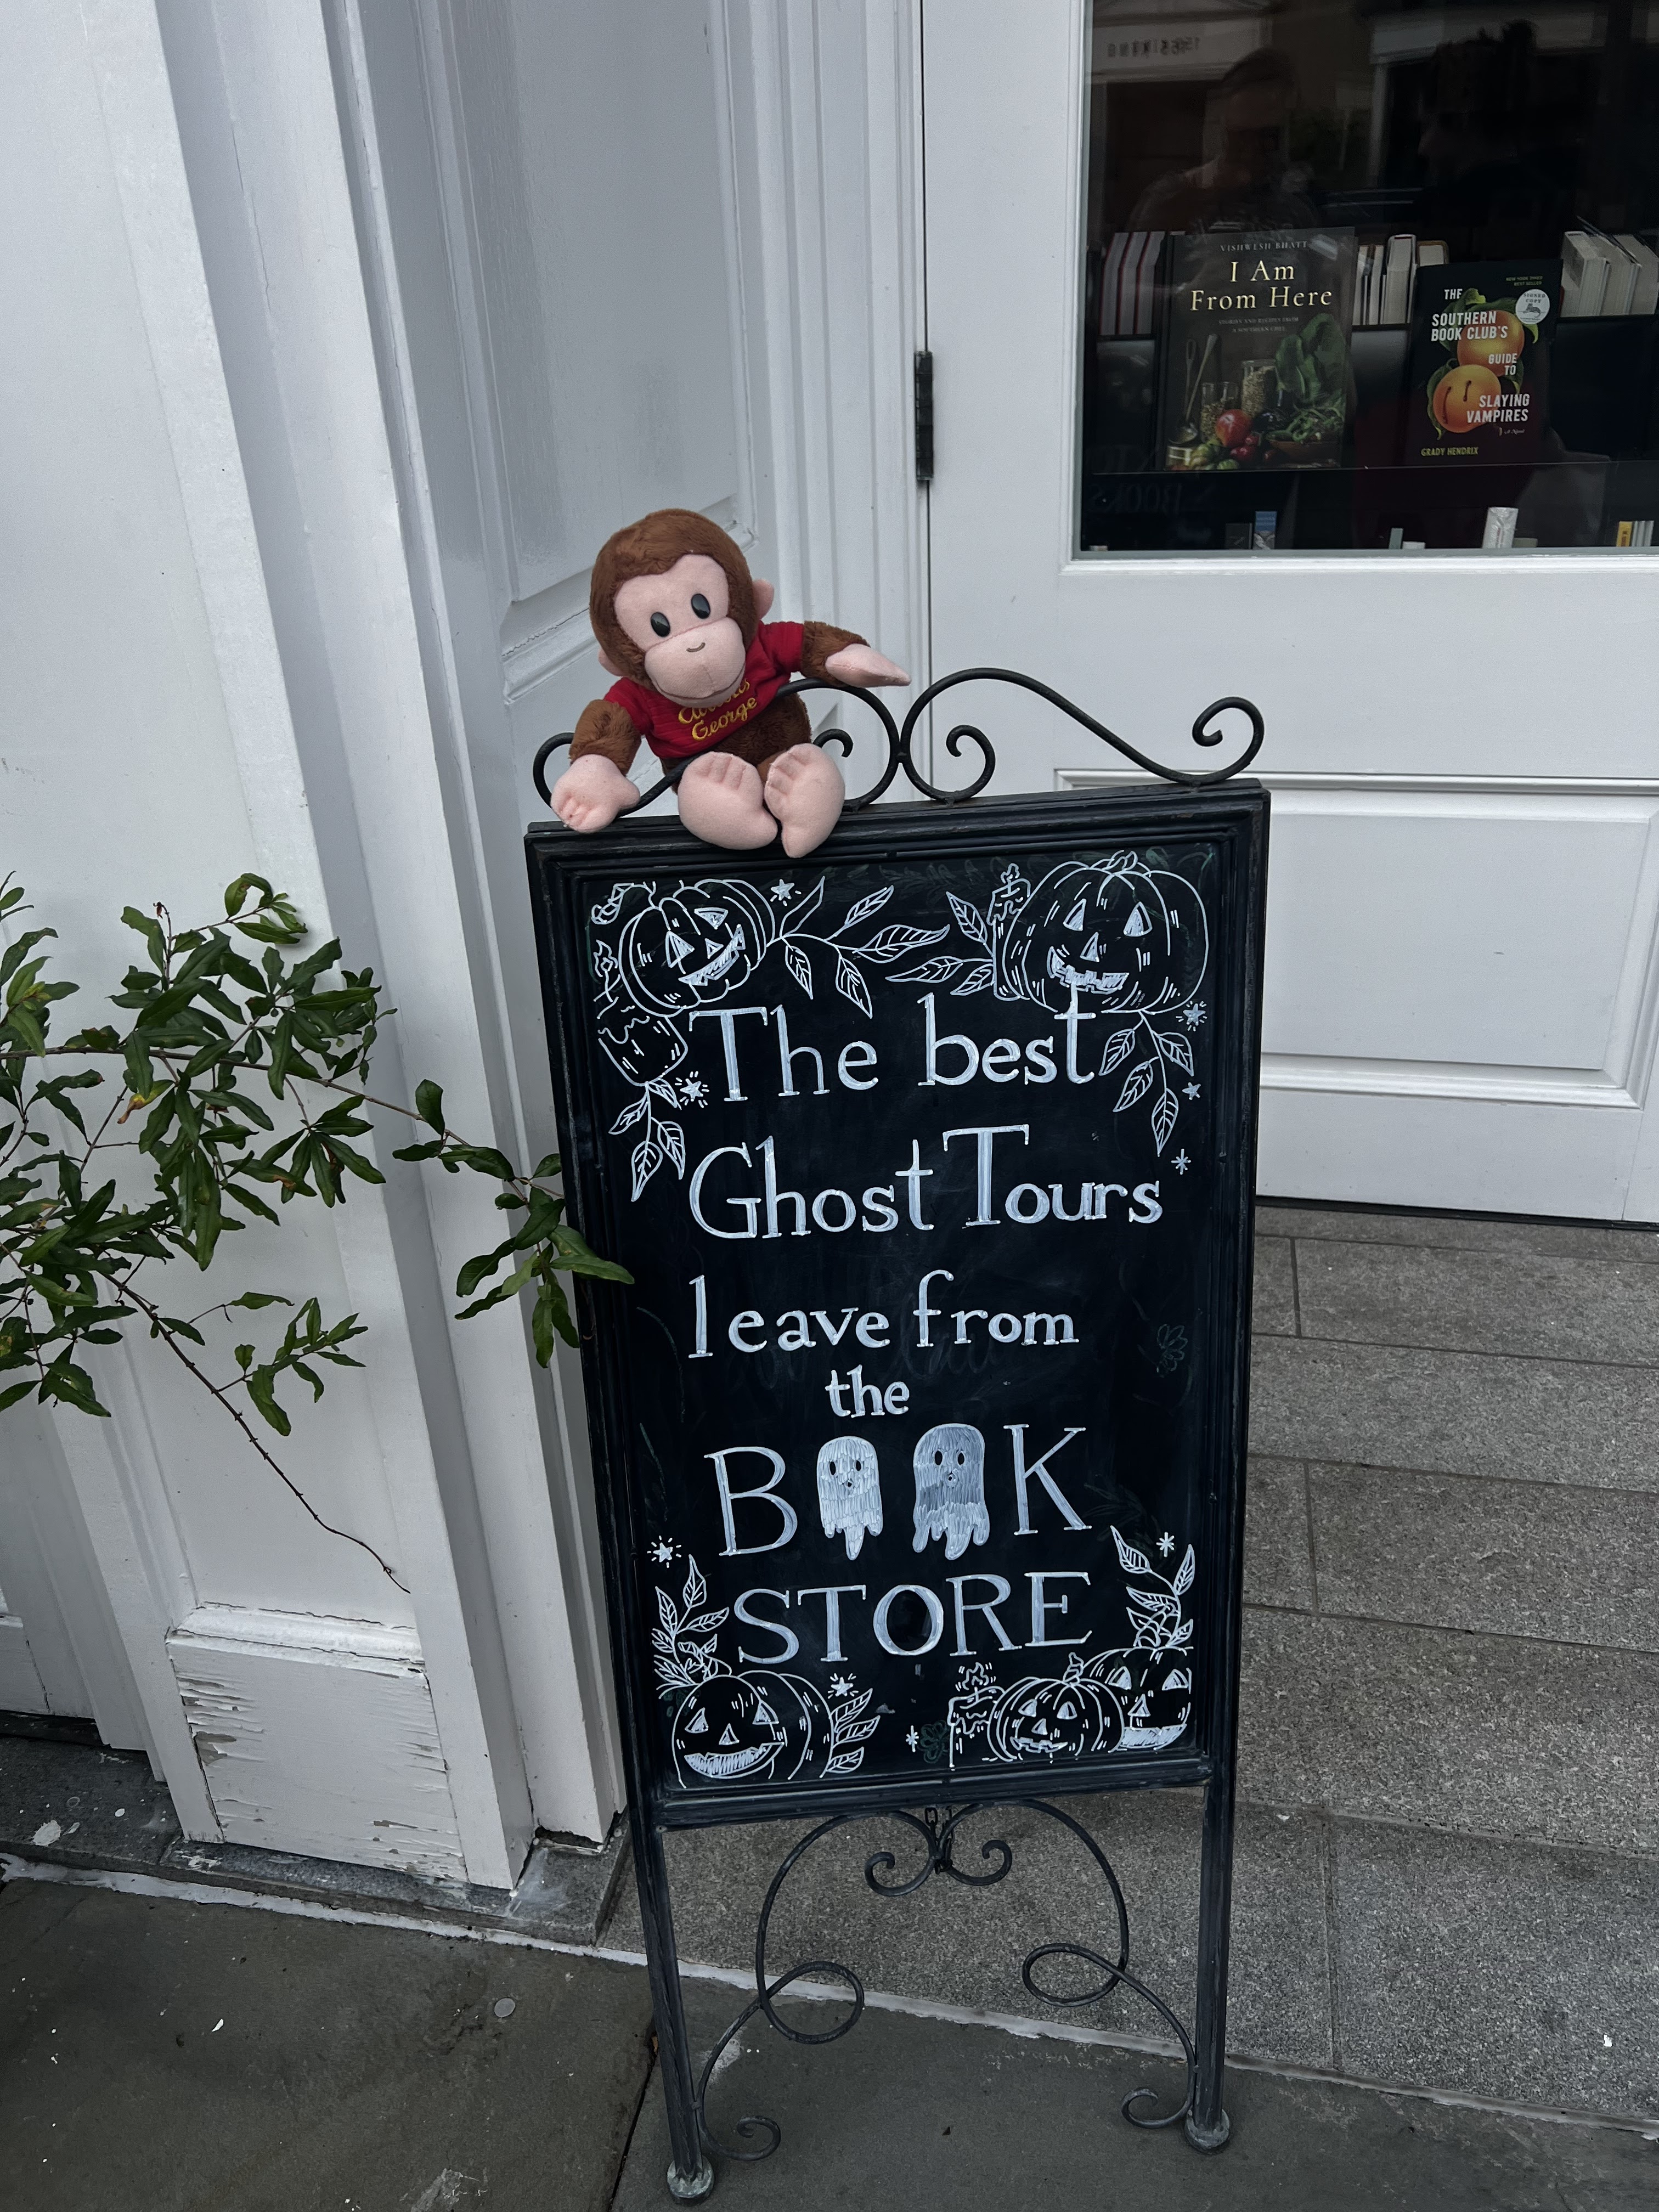 VISHWESH BHATT
I Am
From Here
STORIES AND RECIPES FROM
A SOUTHERN CHEF
NEW YORK TIMES
BEST SELLER
THE
SOUTHERN
BOOK CLUB'S
GUIDE
TO
SLAYING
VAMPIRES
A Novel
GRADY HENDRIX
Curious
George
The best
Ghost Tours
leave from
the
B K
STORE